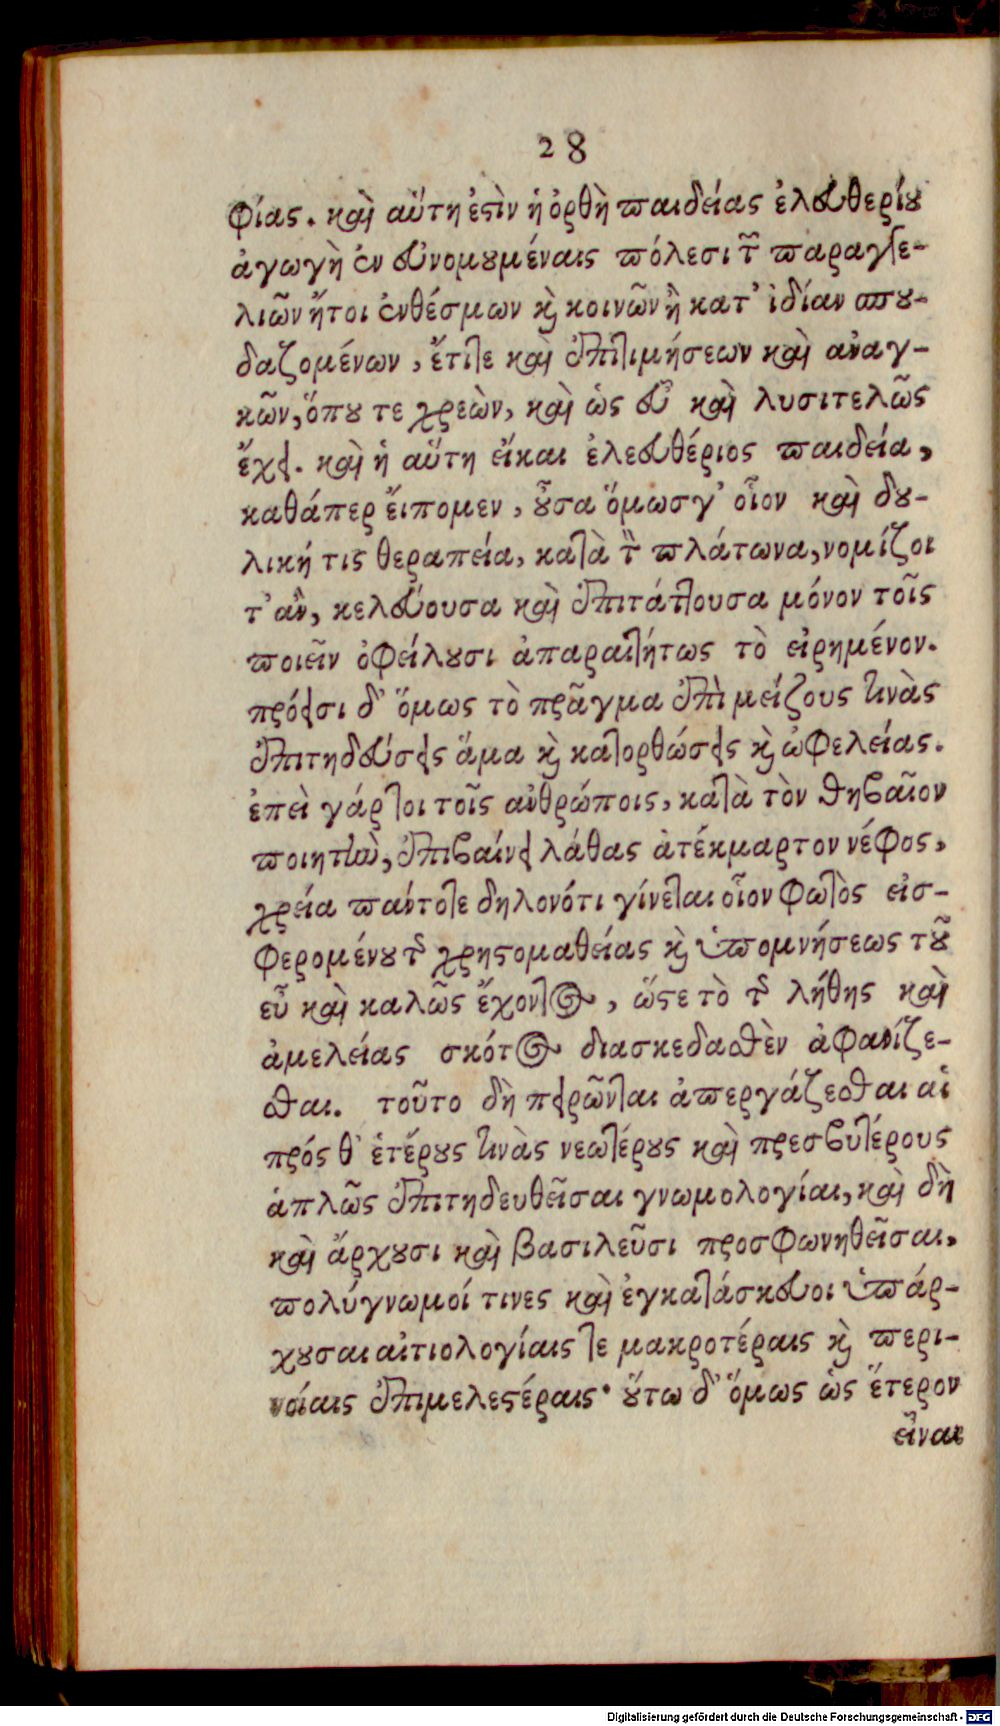 28
φίας. καὶ αὕτη ἐστὶν ἡ ὀρθὴ παιδείας ἐλευθερίου
ἀγωγὴ ἐν εὐνομουμέναις πόλεσι τῶν παραγγε-
λιῶν ἤτοι ἐνθέσμων καὶ κοινῶν ἢ κατ' ἰδίαν σπου-
δαζομένων, ἔτι τε καὶ ἐπιτιμήσεων καὶ ἀναγ-
κῶν, ὅπου τε χρεὼν, καὶ ὡς εὖ καὶ λυσιτελῶς
ἔχει. καὶ ἡ αὕτη εἴκαι ἐλευθέριος παιδεία,
καθάπερ ἔιπομεν, οὖσα ὅμωσγ' οἷον καὶ δου-
λική τις θεραπεία, κατὰ τὸν πλάτωνα, νομίζοι
τ' ἀν, κελεύουσα καὶ ἐπιτάττουσα μόνον τοῖς
ποιεῖν ὀφείλουσι ἀπαραιτήτως τὸ εἰρημένον.
πρόεισι δ' ὅμως τὸ πρᾶγμα ἐπὶ μείζους τινὰς
ἐπιτηδεύσεις ἅμα καὶ κατορθώσεις καὶ ὠφελείας.
ἐπεὶ γάρ τοι τοῖς ἀνθρώποις, κατὰ τὸν θηβαῖον
ποιητὴν, ἐπιβαίνει λάθας ἀτέκμαρτον νέφος,
χρεία πάντοτε δηλονότι γίνεται οἷον φωτὸς εἰσ-
φερομένου τῆς χρηστομαθείας καὶ ὑπομνήσεως τοῦ
εὖ καὶ καλῶς ἔχοντος, ὥστε τὸ τῆς λήθης καὶ
ἀμελείας σκότος διασκεδασθὲν ἀφανίζε-
σθαι. τοῦτο δὴ πειρῶνται ἀπεργάζεσθαι αἱ
πρός θ' ἑτέρους τινὰς νεωτέρους καὶ πρεσβυτέρους
ἁπλῶς ἐπιτηδευθεῖσαι γνωμολογίαι, καὶ δὴ
καὶ ἄρχουσι καὶ βασιλεῦσι προσφωνηθεῖσαι,
πολύγνωμοί τινες καὶ ἐγκατάσκευοι ὑπάρ-
χουσαι αἰτιολογίαις τε μακροτέραις καὶ περι-
νοίαις ἐπιμελεστέραις· οὕτω δ' ὅμως ὡς ἕτερον
εἶναι
Digitalisierung gefördert durch die Deutsche Forschungsgemeinschaft - DFG